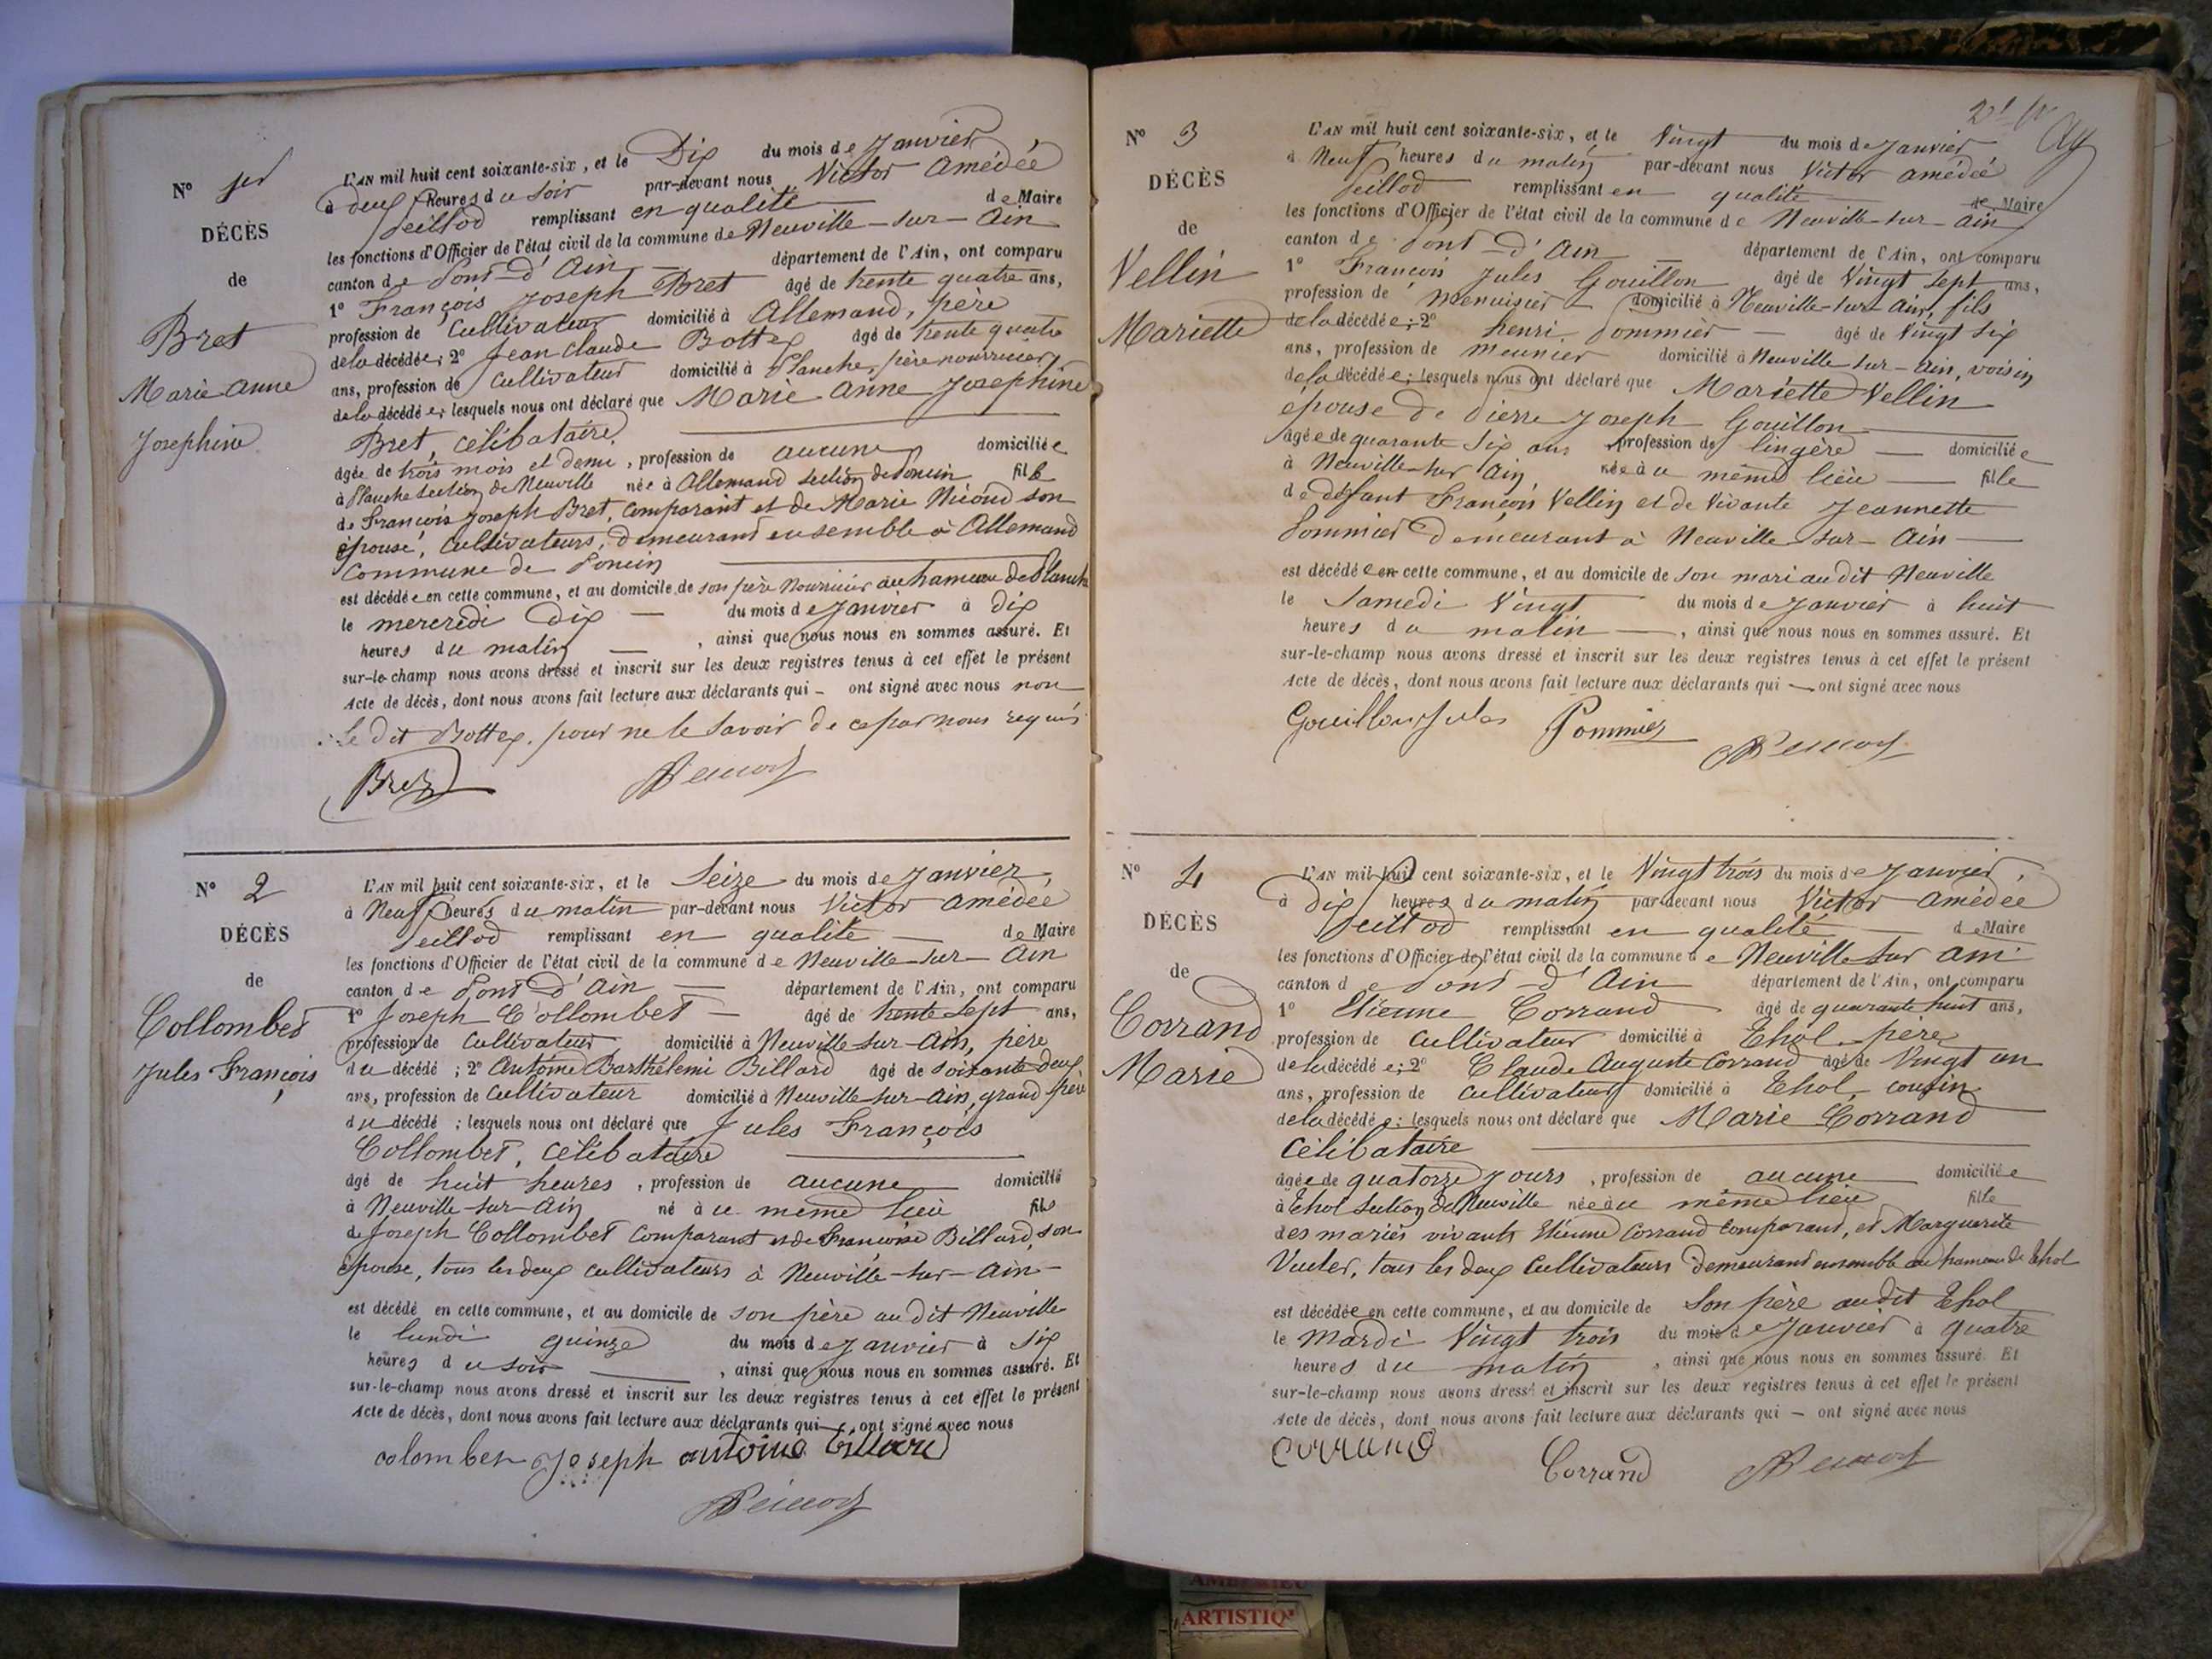 Nº 1er
DÉCÈS
de
Bret
Marie Anne
Josephine
L'AN mil huit cent soixante-six, et le Dix du mois de Janvier
à deux heures du soir par-devant nous Victor Amédée
Peillod remplissant en qualité de Maire
les fonctions d'Officier de l'état civil de la commune de Neuville-sur-Ain
canton de Pont-d'Ain département de l'Ain, ont comparu
1º François Joseph Bret âgé de trente quatre ans,
profession de Cultivateur domicilié à Allemand, père
de la décédée; 2º Jean Claude Bottex âgé de trente quatre
ans, profession de cultivateur domicilié à Planche, père nourricier
de la décédée; lesquels nous ont déclaré que Marie Anne Josephine
Bret, célibataire,
âgée de trois mois et demi, profession de aucune domiciliée
à Planche section de Neuville née à Allemand section de Poncin fille
de François Joseph Bret, comparant et de Marie Nicoud son
épouse, cultivateurs, demeurant ensemble à Allemand
Commune de Poncin
est décédée en cette commune, et au domicile de son père nourricier au hameau de Planche
le mercredi dix du mois de Janvier à dix
heures du matin, ainsi que nous nous en sommes assuré. Et
sur-le-champ nous avons dressé et inscrit sur les deux registres tenus à cet effet le présent
Acte de décès, dont nous avons fait lecture aux déclarants qui - ont signé avec nous non
le dit Bottex, pour ne le savoir de ce par nous requis
Bret
Nº 2
DÉCÈS
de
Collombet
Jules François
L'AN mil huit cent soixante-six, et le Seize du mois de Janvier,
à Neuf heures du matin par-devant nous Victor Amédée
Peillod remplissant en qualité de Maire
les fonctions d'Officier de l'état civil de la commune de Neuville-sur-Ain
canton de Pont d'Ain département de l'Ain, ont comparu
1º Joseph Collombet âgé de trente Sept ans,
profession de Cultivateur domicilié à Neuville-sur-Ain, père
du décédé; 2º Antoine Barthélemi Billard âgé de soixante deux
ans, profession de cultivateur domicilié à Neuville-sur-Ain, grand père
du décédé; lesquels nous ont déclaré que Jules François
Collombet, célibataire
âgé de huit heures, profession de aucune domicilié
à Neuville-sur-Ain né à u même lieu fils
de Joseph Collombet comparant et de Françoise Billard, son
épouse, tous les deux cultivateurs à Neuville-sur-Ain-
est décédé en cette commune, et au domicile de son père audit Neuville
le lundi quinze du mois de Janvier à six
heures du soir, ainsi que nous nous en sommes assuré. Et
sur-le-champ nous avons dressé et inscrit sur les deux registres tenus à cet effet le présent
Acte de décès, dont nous avons fait lecture aux déclarants qui - ont signé avec nous
colombet Joseph antoine billard
Nº 3
DÉCÈS
de
Vellin
Mariette
L'AN mil huit cent soixante-six, et le Vingt du mois de Janvier
à Neuf heures du matin par-devant nous Victor Amédée
Peillod remplissant en qualité de Maire
les fonctions d'Officier de l'état civil de la commune de Neuville-sur-Ain
canton de Pont-d'Ain département de l'Ain, ont comparu
1º François Jules Gouillon âgé de Vingt Sept ans,
profession de Menuisier domicilié à Neuville-sur-Ain, fils
de la décédée; 2º henri Pommier âgé de Vingt Six
ans, profession de meunier domicilié à Neuville-sur-Ain, voisin
de la décédée; lesquels nous ont déclaré que Mariette Vellin
épouse de Pierre Joseph Gouillon
âgée de quarante Six ans profession de lingère domiciliée
à Neuville-sur Ain née à u même lieu fille
de défunt François Vellin et de Vivante Jeannette
Pommier demeurant à Neuville-sur-Ain
est décédée en cette commune, et au domicile de son mari audit Neuville
le Samedi Vingt du mois de Janvier à huit
heures du matin, ainsi que nous nous en sommes assuré. Et
sur-le-champ nous avons dressé et inscrit sur les deux registres tenus à cet effet le présent
Acte de décès, dont nous avons fait lecture aux déclarants qui - ont signé avec nous
Gouillon Jules Pommier
Nº 4
DÉCÈS
de
Corrand
Marie
L'AN mil huit cent soixante-six, et le Vingt trois du mois de Janvier
à dix heures du matin par-devant nous Victor Amédée
Peillod remplissant en qualité de Maire
les fonctions d'Officier de l'état civil de la commune de Neuville sur Ain
canton de Pont-d'Ain département de l'Ain, ont comparu
1º Etienne Corrand âgé de quarante huit ans,
profession de cultivateur domicilié à Thol père
de la décédée; 2º Claude Auguste Corrand âgé de Vingt un
ans, profession de cultivateur domicilié à Thol, cousin
de la décédée; lesquels nous ont déclaré que Marie Corrand
célibataire
âgée de quatorze jours, profession de aucune domiciliée
à Thol section de Neuville née à u même lieu fille
des mariés vivants Etienne Corrand comparant, et Marguerite
tous les deux cultivateurs demeurant ensemble au hameau de Thol
est décédée en cette commune, et au domicile de son père audit Thol
le Mardi Vingt trois du mois de Janvier à quatre
heures du matin, ainsi que nous nous en sommes assuré. Et
sur-le-champ nous avons dressé et inscrit sur les deux registres tenus à cet effet le présent
Acte de décès, dont nous avons fait lecture aux déclarants qui - ont signé avec nous
Corrand Corrand
ARTISTIQ